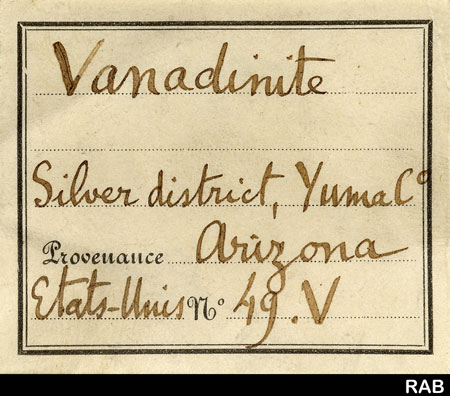 Vanadinite
Silver district, Yuma Co
Provenance Arizona
Etats-Unis No 49.V
RAB